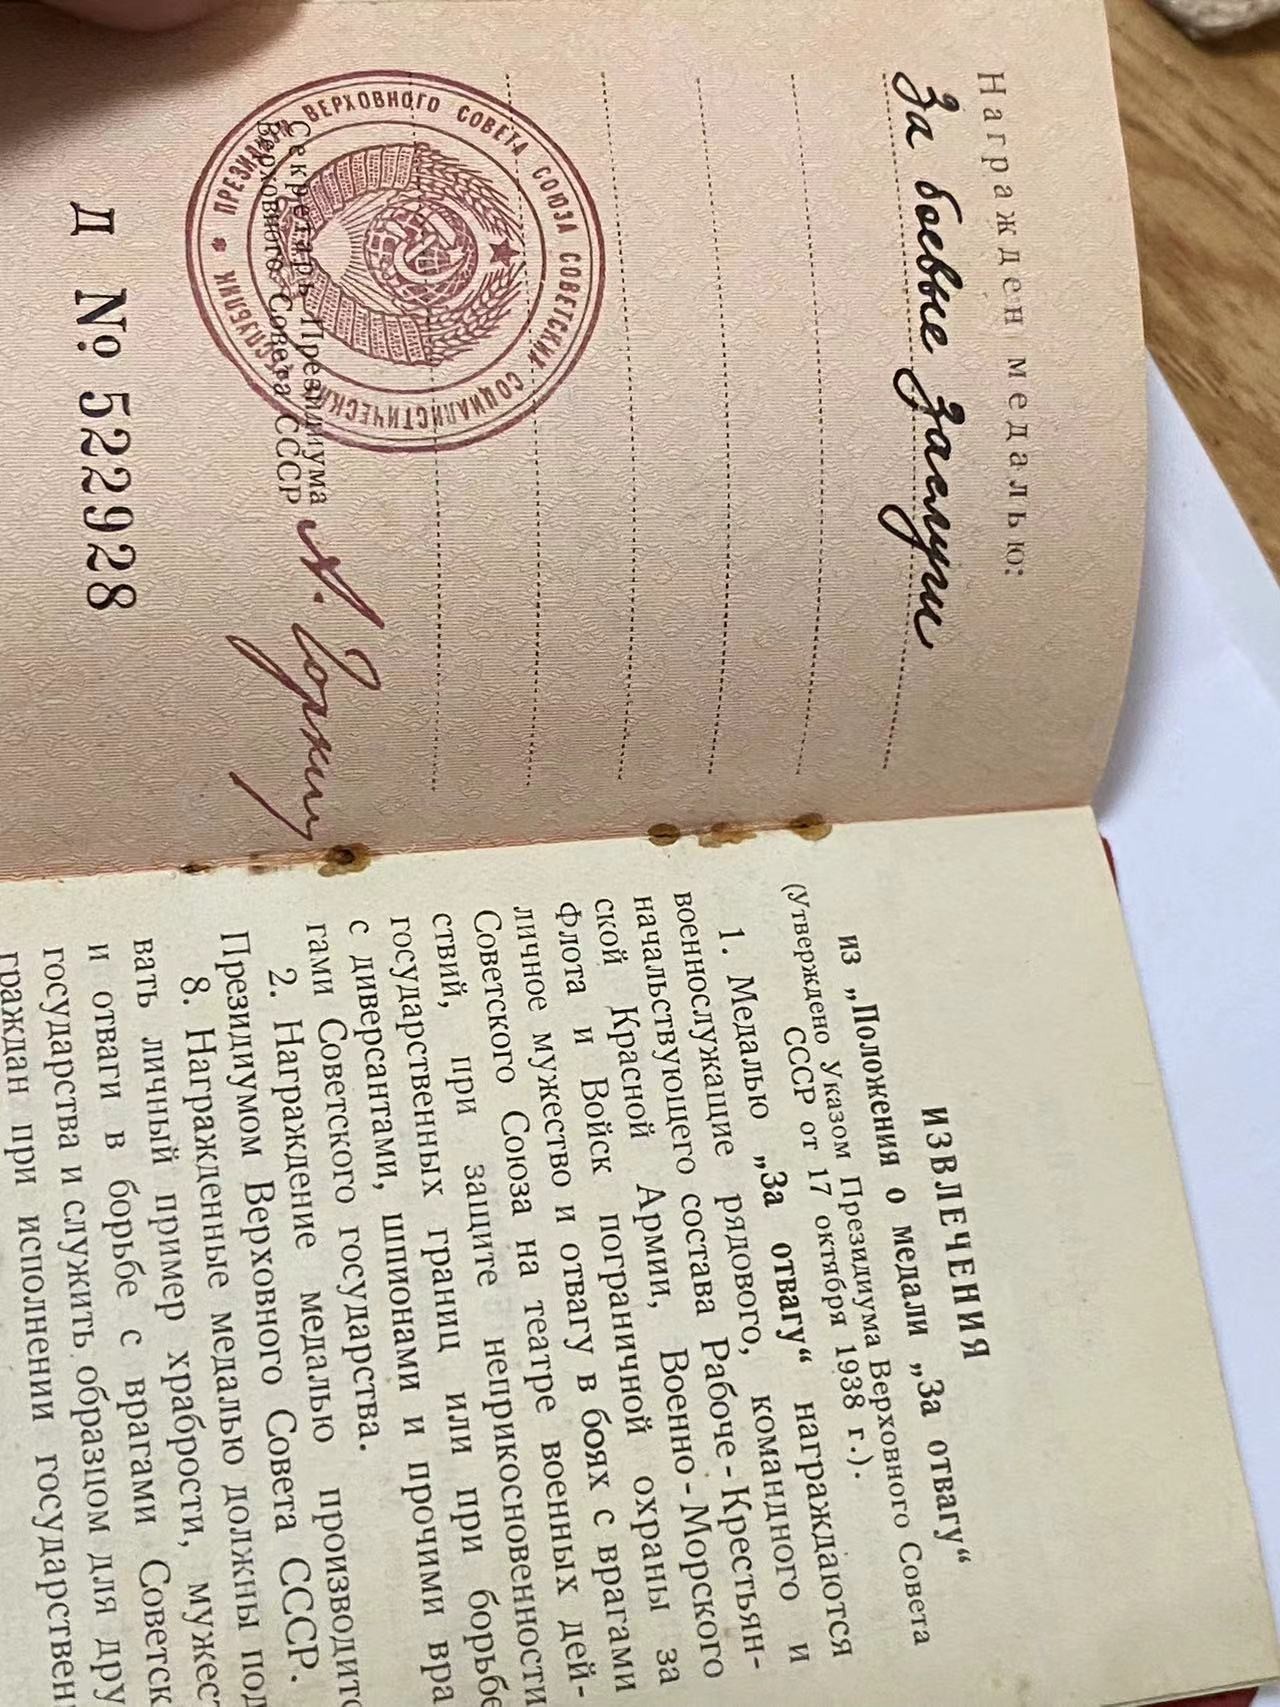 Награжден медалью:
За боевые Заслуги
ПРЕЗИДИУМ ВЕРХОВНОГО СОВЕТА СОЮЗА СОВЕТСКИХ СОЦИАЛИСТИЧЕСКИХ РЕСПУБЛИК
Секретарь Президиума
Верховного Совета СССР
А. Горкин
Д № 522928
ИЗВЛЕЧЕНИЯ
из „Положения о медали „За отвагу“
(Утверждено Указом Президиума Верховного Совета
СССР от 17 октября 1938 г.).
1. Медалью „За отвагу“ награждаются
военнослужащие рядового, командного и
начальствующего состава Рабоче-Крестьян-
ской Красной Армии, Военно-Морского
Флота и Войск пограничной охраны за
личное мужество и отвагу в боях с врагами
Советского Союза на театре военных дей-
ствий, при защите неприкосновенности
государственных границ или при борьбе
с диверсантами, шпионами и прочими вра
гами Советского государства.
2. Награждение медалью производитс
Президиумом Верховного Совета СССР.
8. Награжденные медалью должны под
вать личный пример храбрости, мужест
и отваги в борьбе с врагами Советск
государства и служить образцом для дру
граждан при исполнении государствен